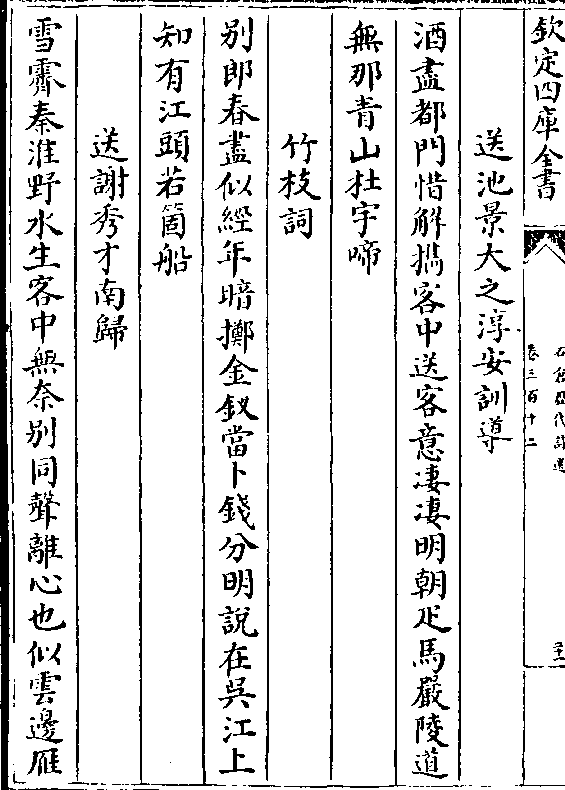 欽定四庫全書
石倉歷代詩選
卷三百十二
送池景大之淳安訓導
酒盡都門惜解攜客中送客意凄凄明朝疋馬嚴陵道
無那青山杜宇啼
竹枝詞
別郎春盡似經年暗擲金釵當卜錢分明說在吳江上
知有江頭若箇船
送謝秀才南歸
雪霽秦淮野水生客中無奈別同聲離心也似雲邊雁